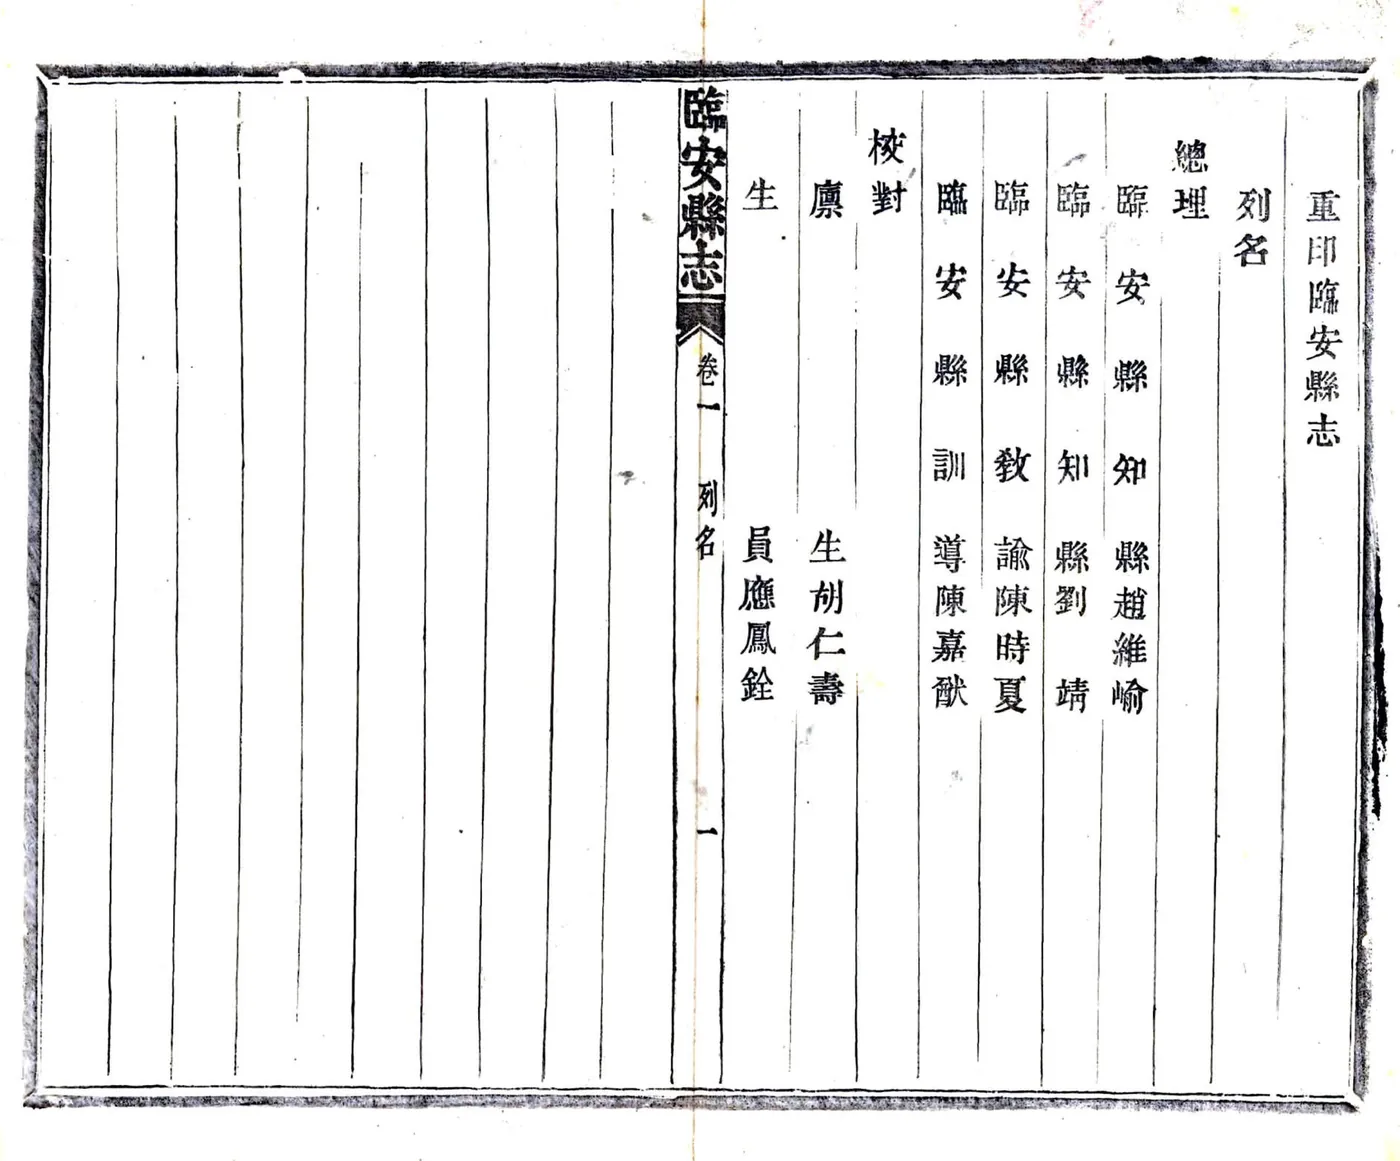 重印臨安縣志
列名
總理
臨安縣知縣趙維崳
臨安縣知縣劉靖
臨安縣教諭陳時夏
臨安縣訓導陳嘉猷
校對
廩生胡仁壽
生員應鳳銓
臨安縣志
卷一 列名 一